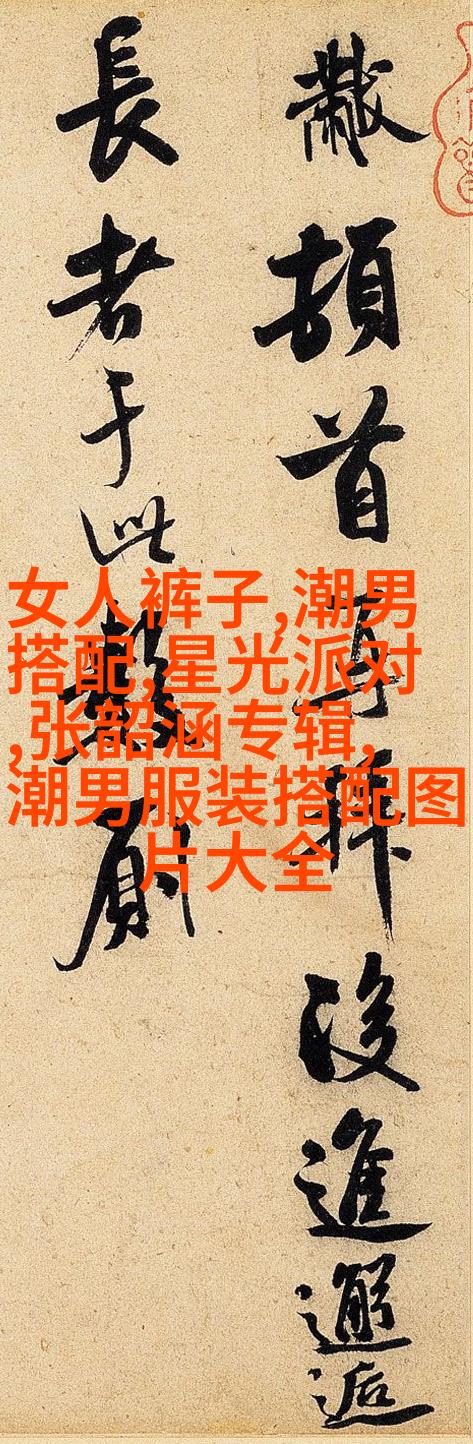 黻頓首再拜後進邂逅
長者于此數厠
女人裤子,潮男
搭配,星光派对
,张韶涵专辑,
潮男服装搭配图
片大全